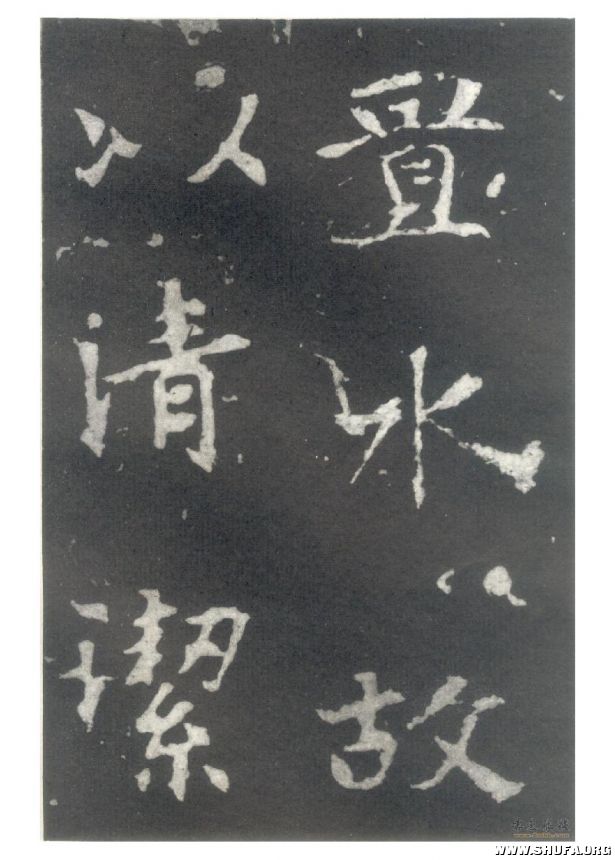 置水故
以清潔
WWW.SHUFA.ORG